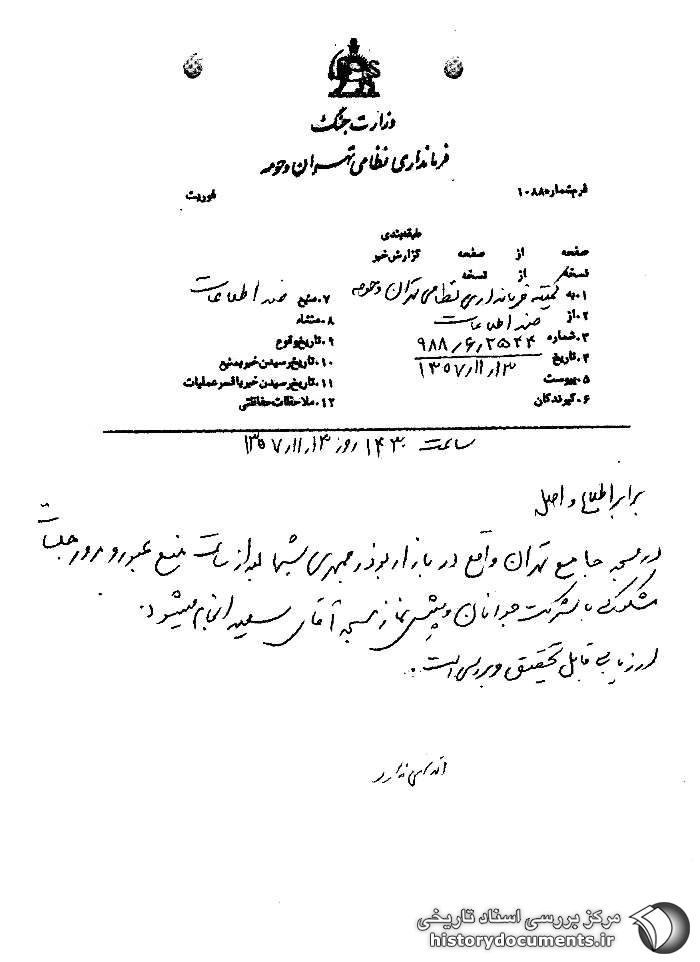 وزارت جنگ
فرمانداری نظامی تهران و حومه
فرم شماره ۱۰۸۸
فوریت
طبقه‌بندی
صفحه از صفحه گزارش خبر
نسخه از نسخه
۱. به کمیته فرمانداری نظامی تهران و حومه
۲. از ضد اطلاعات
۳. شماره ۹۸۸/۶/۲۵۴۴
۴. تاریخ ۱۳۵۷/۱۱/۱۳
۵. پیوست
۶. گیرندگان
۷. منبع ضد اطلاعات
۸. منشاء
۹. تاریخ وقوع
۱۰. تاریخ رسیدن خبر به منبع
۱۱. تاریخ رسیدن خبر با فسر عملیات
۱۲. ملاحظات حفاظتی
ساعت ۱۴۳۰ روز ۱۳۵۷/۱۱/۱۴
برابر اطلاع واصل
در مسجد جامع تهران واقع در بازار بوذرجمهری شبها بعد از ساعت منع عبور و مرور جلسات
مشکوکی با شرکت جوانان و پیش نماز مسجد آقای سعید انجام میشود.
ارزیابی قابل تحقیق و بررسی است.
مرکز بررسی اسناد تاریخی
historydocuments.ir